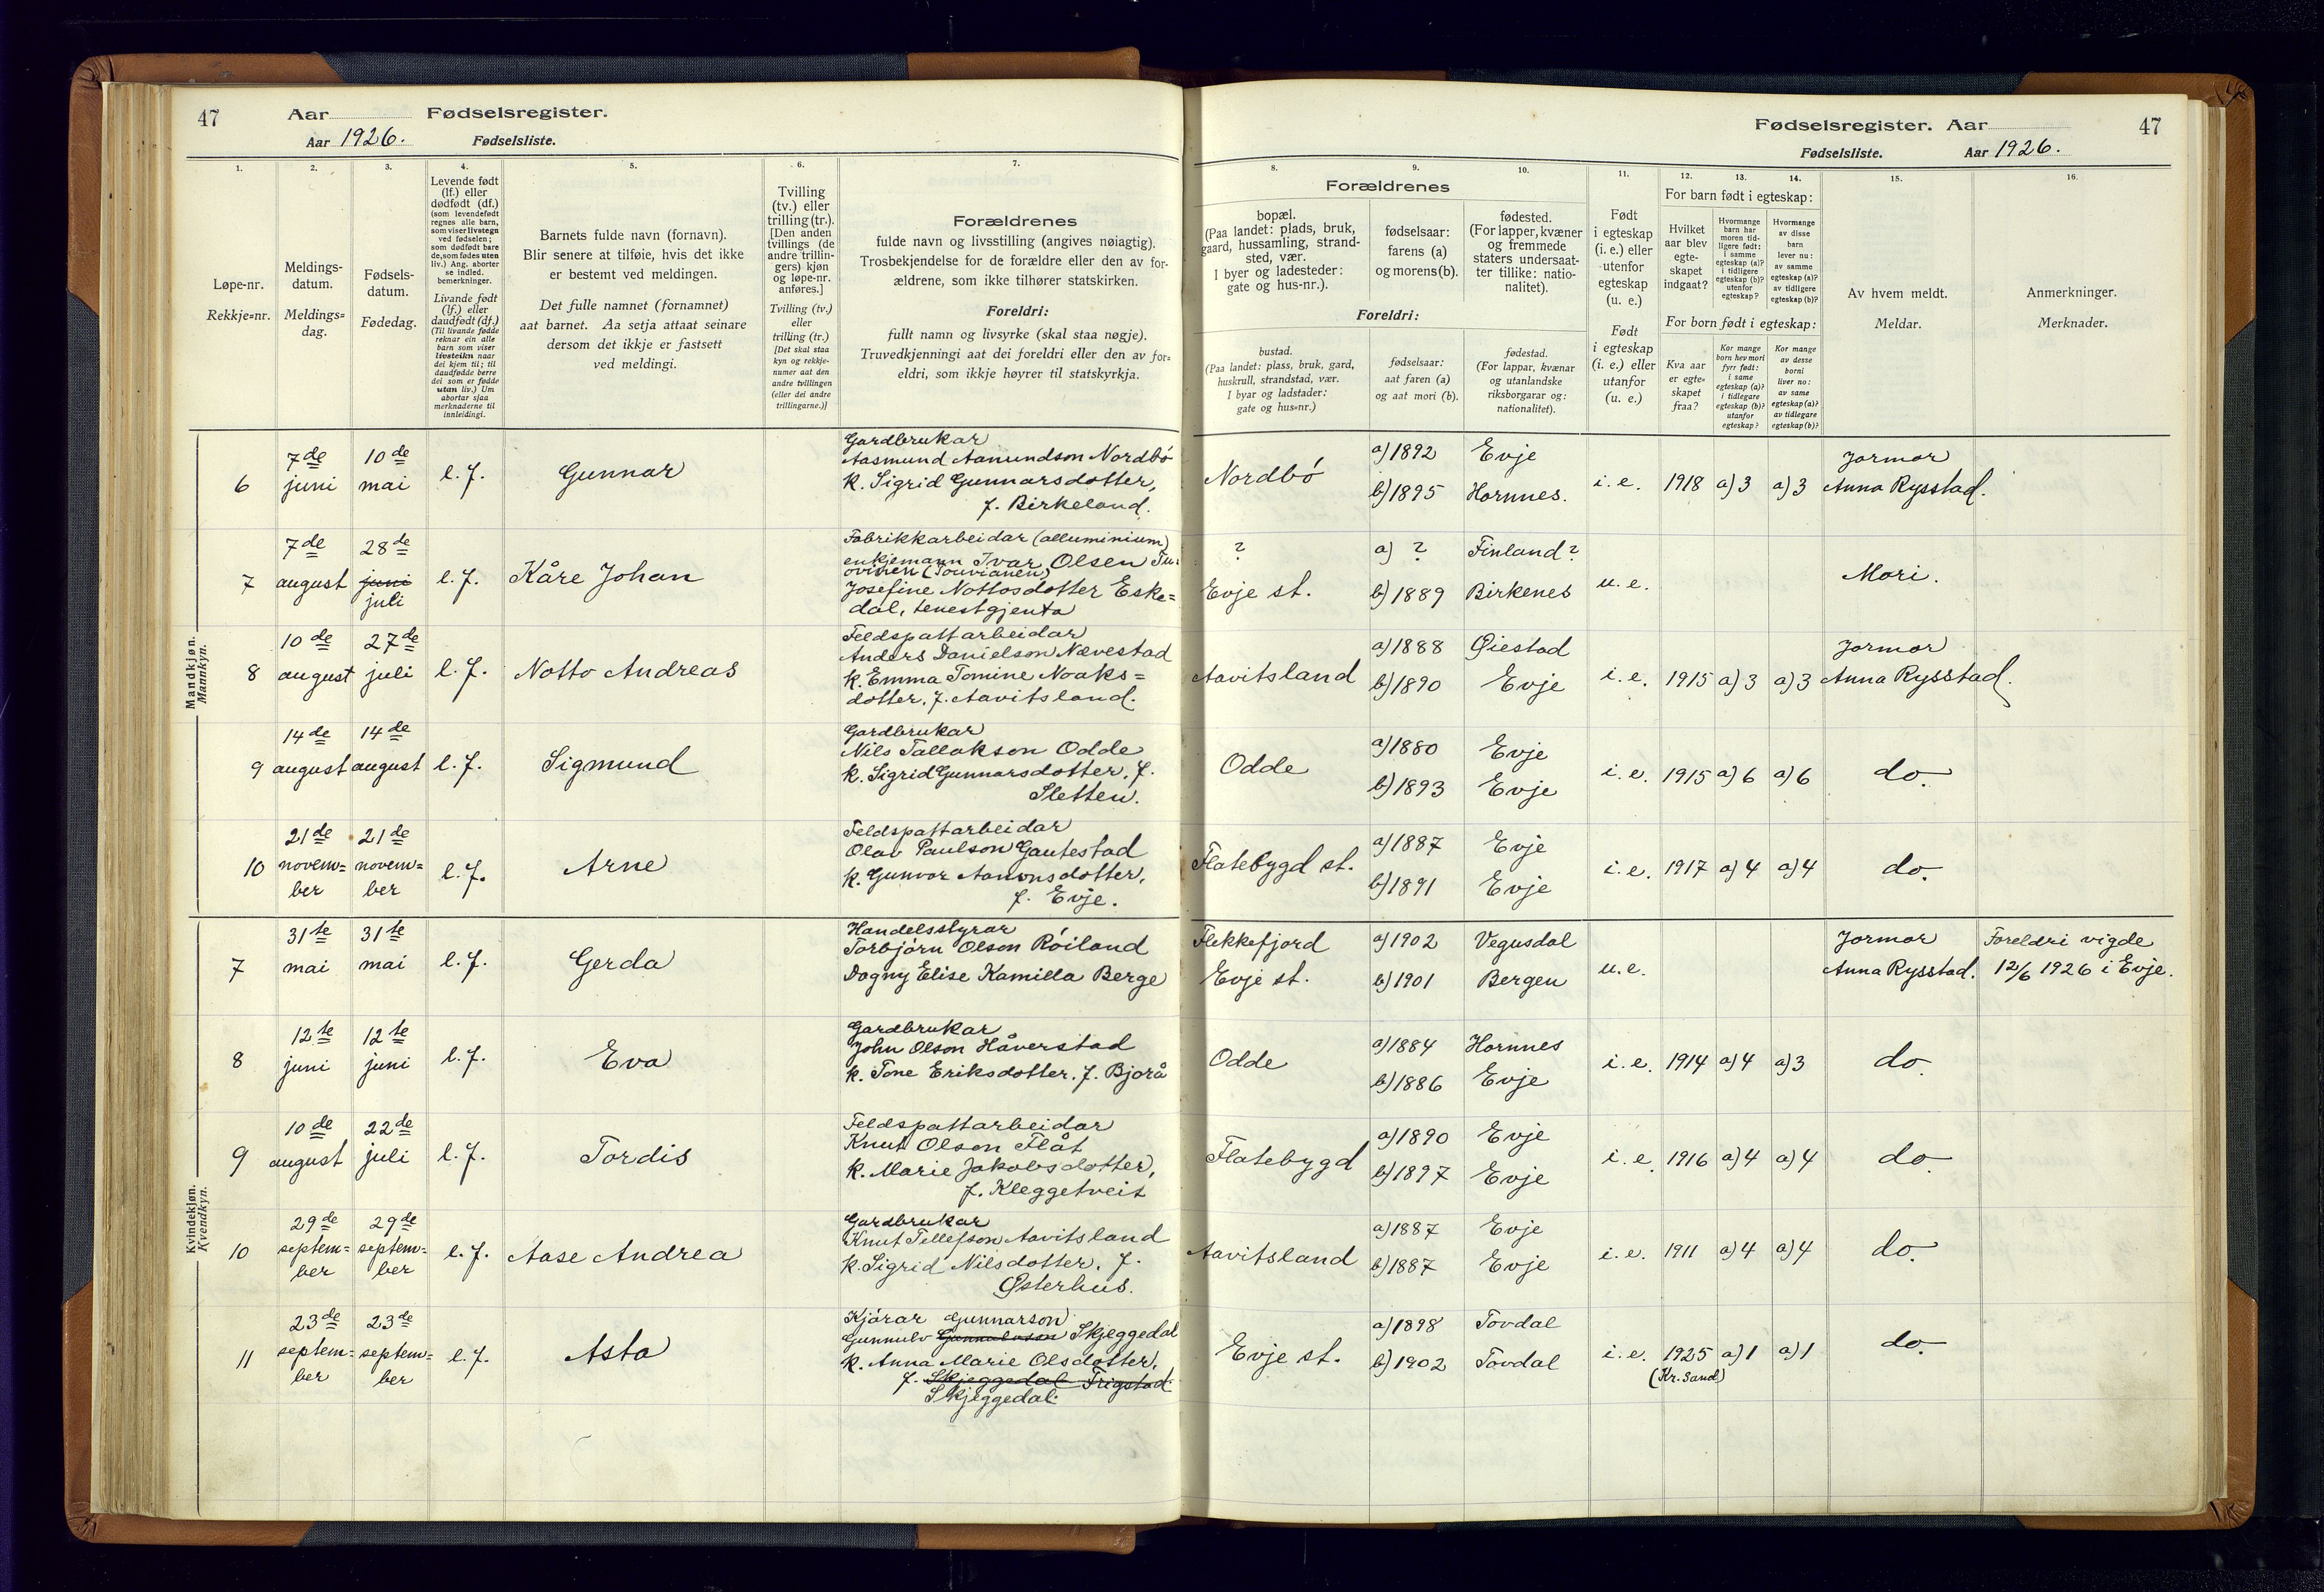 47
Aar
Fødselsregister.
Aar 1926.
Fødselsliste.
Fødselsregister. Aar
47
Fødselsliste.
Aar 1926.
1.
Løpe-nr.
Rekkje=nr.
2.
Meldings-
datum.
Meldings=
dag.
3.
Fødsels-
datum.
Fødedag.
4.
Levende født
(lf.) eller
dødfødt (df.)
(som levendefødt
regnes alle barn,
som viser livstegn
ved fødselen;
som dødfødt bare
de, som fødes uten
liv.) Ang. aborter
se indled.
bemerkninger.
Livande født
(lf.) eller
daudfødt (df.)
(Til livande fødde
reknar ein alle
barn som viser
livsteikn naar
dei kjem til; til
daudfødde berre
dei som er fødde
utan liv.) Um
abortar sjaa
merknaderne til
innleidingi.
5.
Barnets fulde navn (fornavn).
Blir senere at tilføie, hvis det ikke
er bestemt ved meldingen.
Det fulle namnet (fornamnet)
aat barnet. Aa setja attaat seinare
dersom det ikkje er fastsett
ved meldingi.
6.
Tvilling
(tv.) eller
trilling (tr.).
[Den anden
tvillings (de
andre trillin-
gers) kjøn
og løpe-nr.
anføres.]
Tvilling (tv.)
eller
trilling (tr.)
[Det skal staa
kyn og rekkje-
numer aat den
andre tvillingen
(eller dei andre
trillingarne.)]
7.
Forældrenes
fulde navn og livsstilling (angives nøiagtig).
Trosbekjendelse for de forældre eller den av for-
ældrene, som ikke tilhører statskirken.
Foreldri:
fullt namn og livsyrke (skal staa nøgje).
Truvedkjenningi aat dei foreldri eller den av for=
eldri, som ikkje høyrer til statskyrkja.
8.
Forældrenes
bopæl.
(Paa landet: plads, bruk,
gaard, hussamling, strand-
sted, vær.
I byer og ladesteder:
gate og hus-nr.).
Foreldri:
bustad.
(Paa landet: plass, bruk, gard,
huskrull, strandstad, vær.
I byar og ladstader:
gate og hus=nr.)
9.
fødselsaar:
farens (a)
og morens (b).
fødselsaar:
aat faren (a)
og aat mori (b).
10.
fødested.
(For lapper, kvæner
og fremmede
staters undersaat-
ter tillike: natio-
nalitet).
fødestad.
(For lappar, kvænar
og utanlandske
riksborgarar og:
nationalitet).
11.
Født
i egteskap
(i. e.) eller
utenfor
egteskap
(u. e.)
Født
i egteskap
(i. e.) eller
utanfor
(u. e.)
12. 13. 14.
For barn født i egteskap:
Hvilket
aar blev
egte-
skapet
indgaat?
Hvormange
barn har
moren tid-
ligere født:
i samme
egteskap (a)?
i tidligere
egteskap (b)?
utenfor
egteskap?
Hvormange
av disse
barn
lever nu:
av samme
egteskap (a)?
av tidligere
egteskap (b)?
For born født i egteskap:
Kva aar
er egte=
skapet
fraa?
Kor mange
born hev mori
fyrr født:
i same
egteskap (a)?
i tidlegare
egteskap (b)?
utanfor
egteskap?
Kor mange
av desse
borni
liver no:
av same
egteskap (a)?
av tidlegare
egteskap (b)?
15.
Av hvem meldt.
Meldar.
16.
Anmerkninger.
Merknader.
Mandkjøn.
Mannkyn.
6
7de
juni
10de
mai
l. f.
Gunnar
Gardbrukar
Aasmund Aanundson Nordbó
k. Sigrid Gunnarsdotter,
f. Birkeland.
Nordbó
a) 1892 Evje
b) 1895 Hornnes.
i. e. 1918 a) 3 a) 3
Jormor
Anna Rysstad.
7
7de
august
28de
juni
juli
l. f.
Kåre Johan
Fabrikkarbeidar (alluminium)
enkjemann Ivar Olsen Tu-
ovinen (Touvianen)
Josefine Nottosdotter Eske=
dal, tenestgjenta
?
Evje st.
a) ? Finland?
b) 1889 Birkenes
u. e.
Mori.
8
10de
august
27de
juli
l. f.
Notto Andreas
Feldspattarbeidar
Anders Danielson Nævestad
k. Emma Tomine Noaks=
dotter, f. Aavitsland.
Aavitsland
a) 1888 Øiestad
b) 1890 Evje
i. e. 1915 a) 3 a) 3
Jormor
Anna Rysstad.
9
14de
august
14de
august
l. f.
Sigmund
Gardbrukar
Nils Tallakson Odde
k. Sigrid Gunnarsdotter, f.
Sletten.
Odde
a) 1880 Evje
b) 1893 Evje
i. e. 1915 a) 6 a) 6
do.
10
21de
novem=
ber
21de
novem=
ber
l. f.
Arne
Feldspattarbeidar
Olav Paulson Gautestad
k. Gunvor Aanonsdotter,
f. Evje.
Flatebygd st.
a) 1887 Evje
b) 1891 Evje
i. e. 1917 a) 4 a) 4
do.
Kvindekjøn.
Kvendkyn.
7
31te
mai
31te
mai
l. f.
Gerda
Handelsstyrar
Torbjórn Olson Róiland
Dagny Elise Kamilla Berge
Flekkefjord
Evje st.
a) 1902 Vegusdal
b) 1901 Bergen
u. e.
Jormor
Anna Rysstad.
Foreldri vigde
12/6 1926 i Evje.
8
12te
juni
12te
juni
l. f.
Eva
Gardbrukar
John Olson Håverstad
k. Tone Eriksdotter, f. Bjorå
Odde
a) 1884 Hornnes
b) 1886 Evje
i. e. 1914 a) 4 a) 3
do.
9
10de
august
22de
juli
l. f.
Tordis
Feldspattarbeidar
Knut Olson Flåt
k. Marie Jakobsdotter,
f. Kleggetveit
Flatebygd
a) 1890 Evje
b) 1897 Evje
i. e. 1916 a) 4 a) 4
do.
10
29de
septem=
ber
29de
septem=
ber
l. f.
Aase Andrea
Gardbrukar
Knut Tellefson Aavitsland
k. Sigrid Nilsdotter, f.
Østerhus.
Aavitsland
a) 1887 Evje
b) 1887 Evje
i. e. 1911 a) 4 a) 4
do.
11
23de
septem=
ber
23de
septem=
ber
l. f.
Asta
Kjórar Gunnarson
Gunnulv Gunnulvson Skjeggedal
k. Anna Marie Olsdotter,
f. Skjeggedal Trigstad
Skjeggedal.
Evje st.
a) 1898 Tovdal
b) 1902 Tovdal
i. e. 1925 a) 1 a) 1
(Kr. Sand)
do.